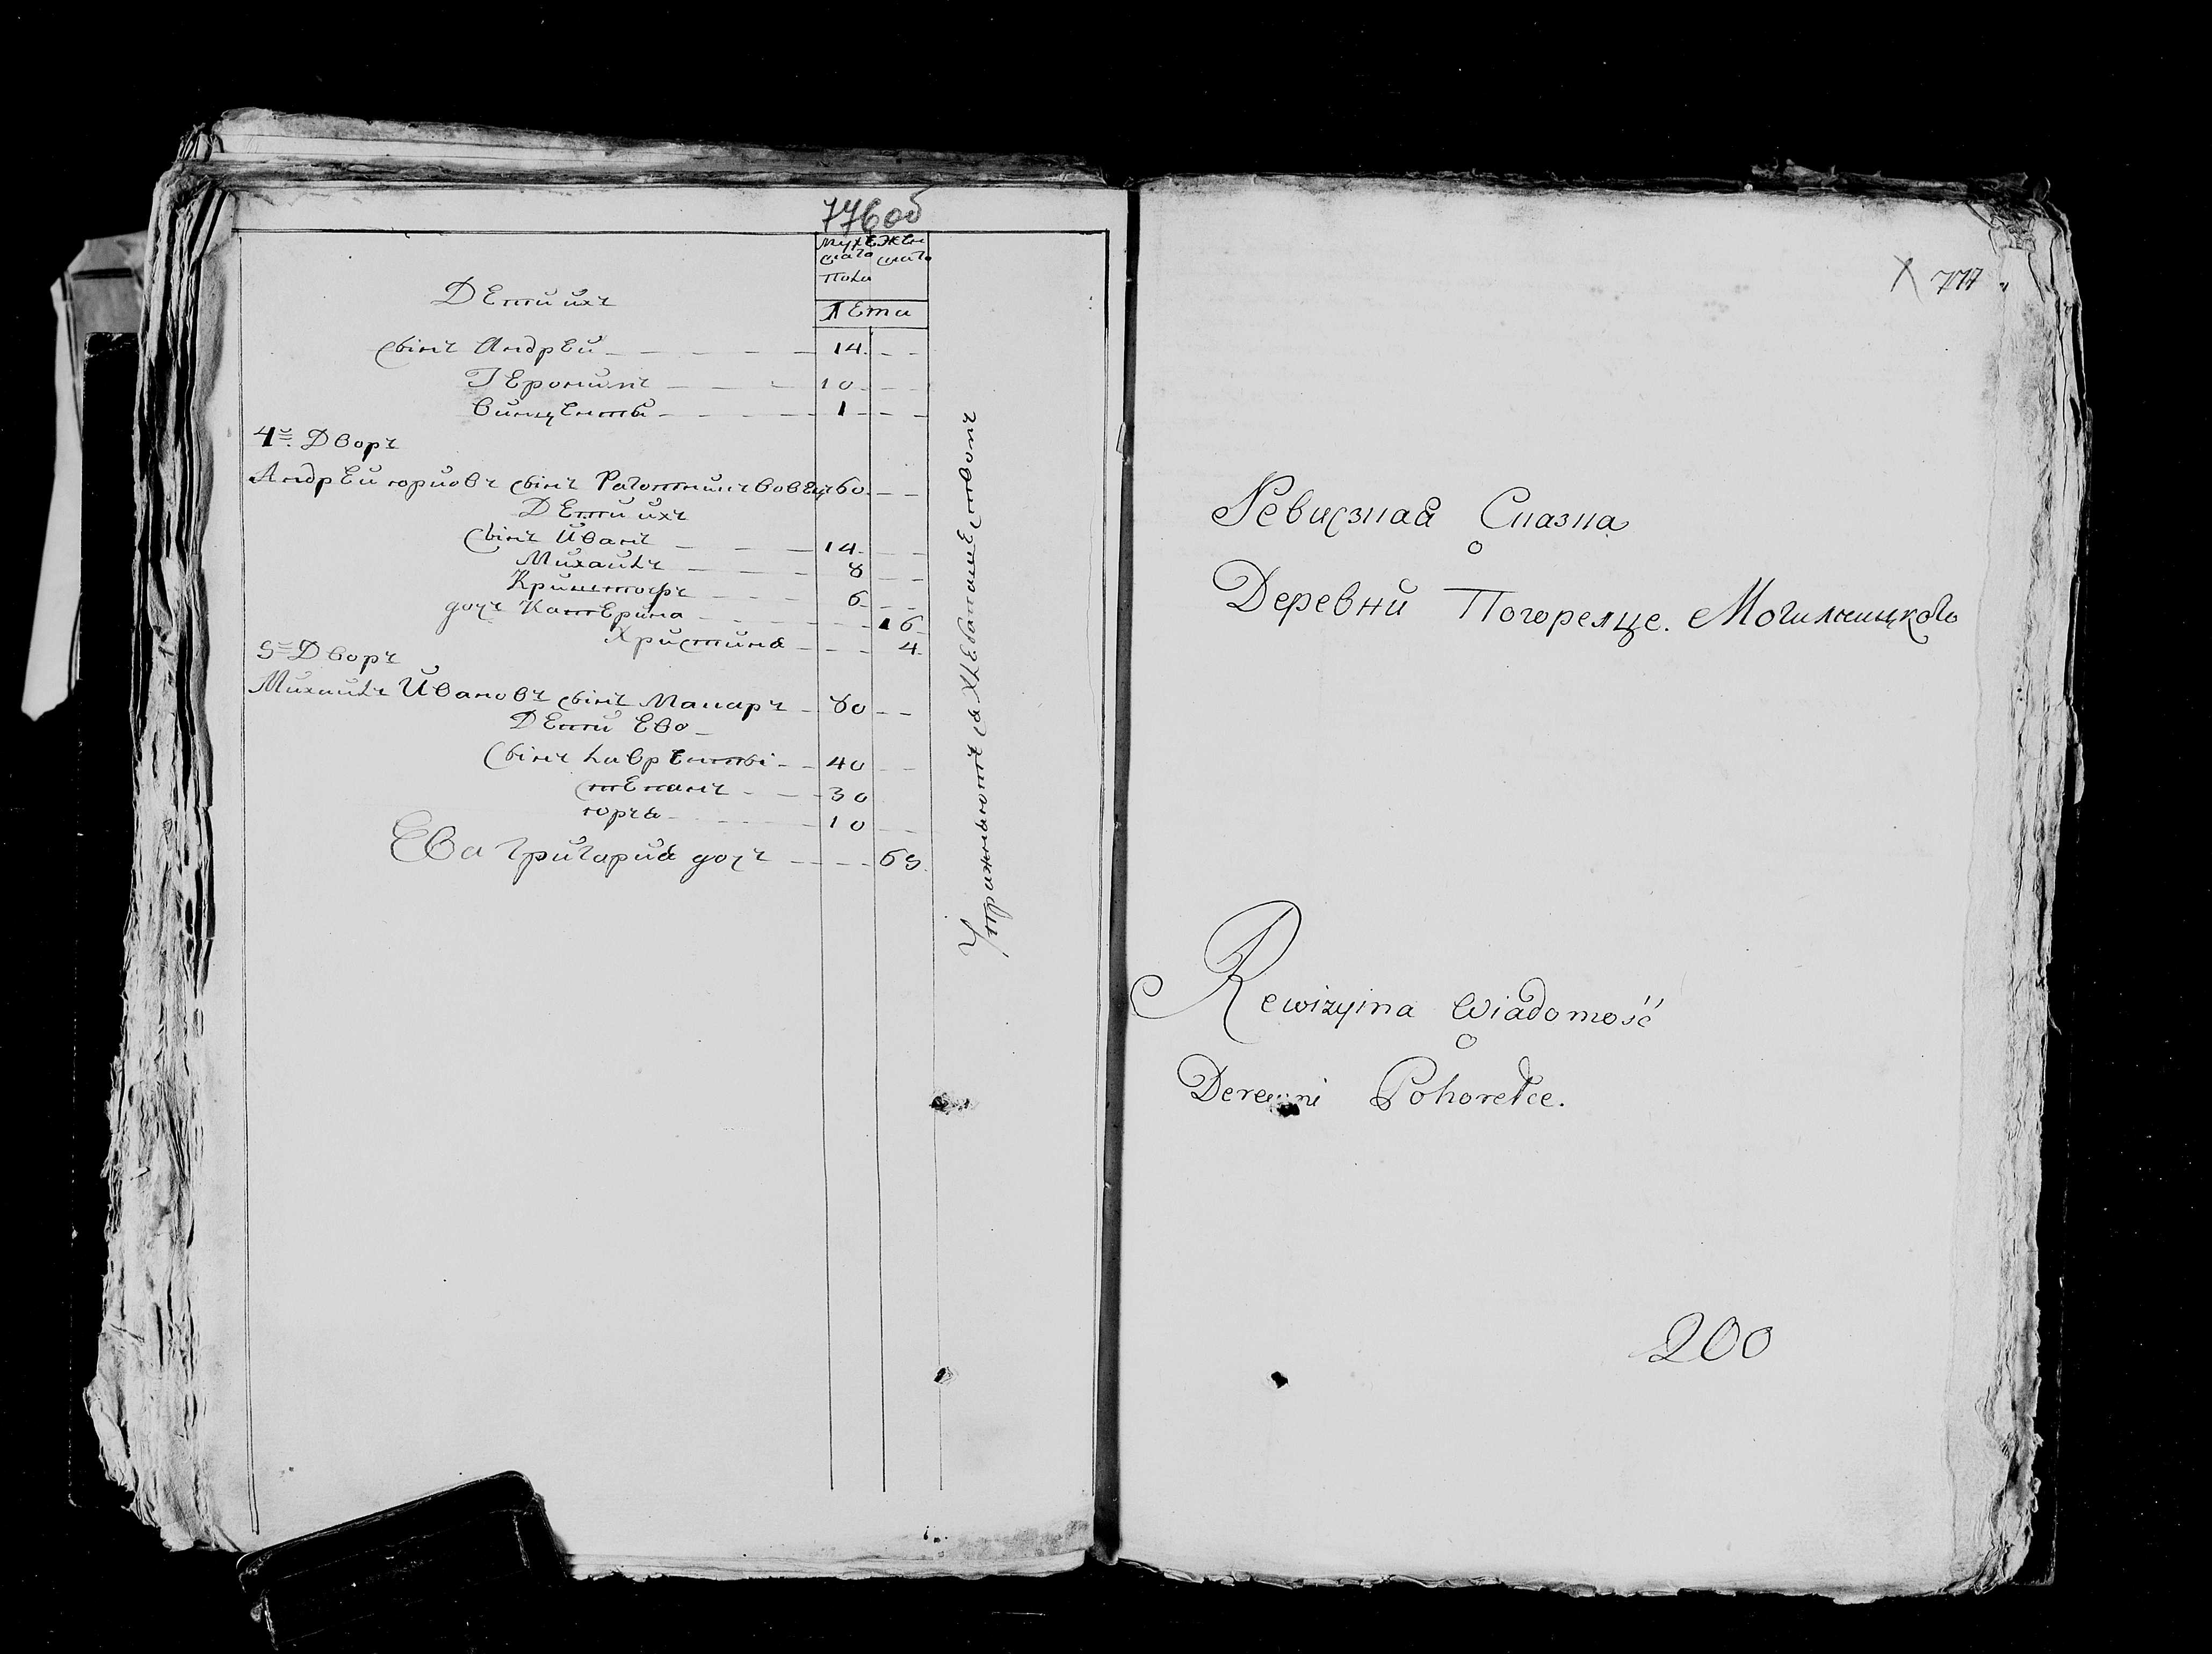 776об
мужеска­го женскаго
Пола
Лета
Дети ихъ
сынъ Андрей 14
Іеронимъ 10
Винценты 1
4й Дворъ
Андрей юриовъ сынъ 60
Дети ихъ
сынъ Иванъ 14
Михаилъ 8
Криштофъ 6
дочъ Катерина 16
Христина 4
5й Дворъ
Михаилъ Ивановъ сынъ Макаръ 80
Дети Ево
сынъ Лаврентыі 40
степанъ 30
юрья 10
Ева Григария дочъ 69
Упражнаютъ са Хлебапашествомъ
777
Ревизная Сказка
Деревни Погорелце. Могильницкого
Rewizyina Wiadomość
Derewni Pohorełce.
200